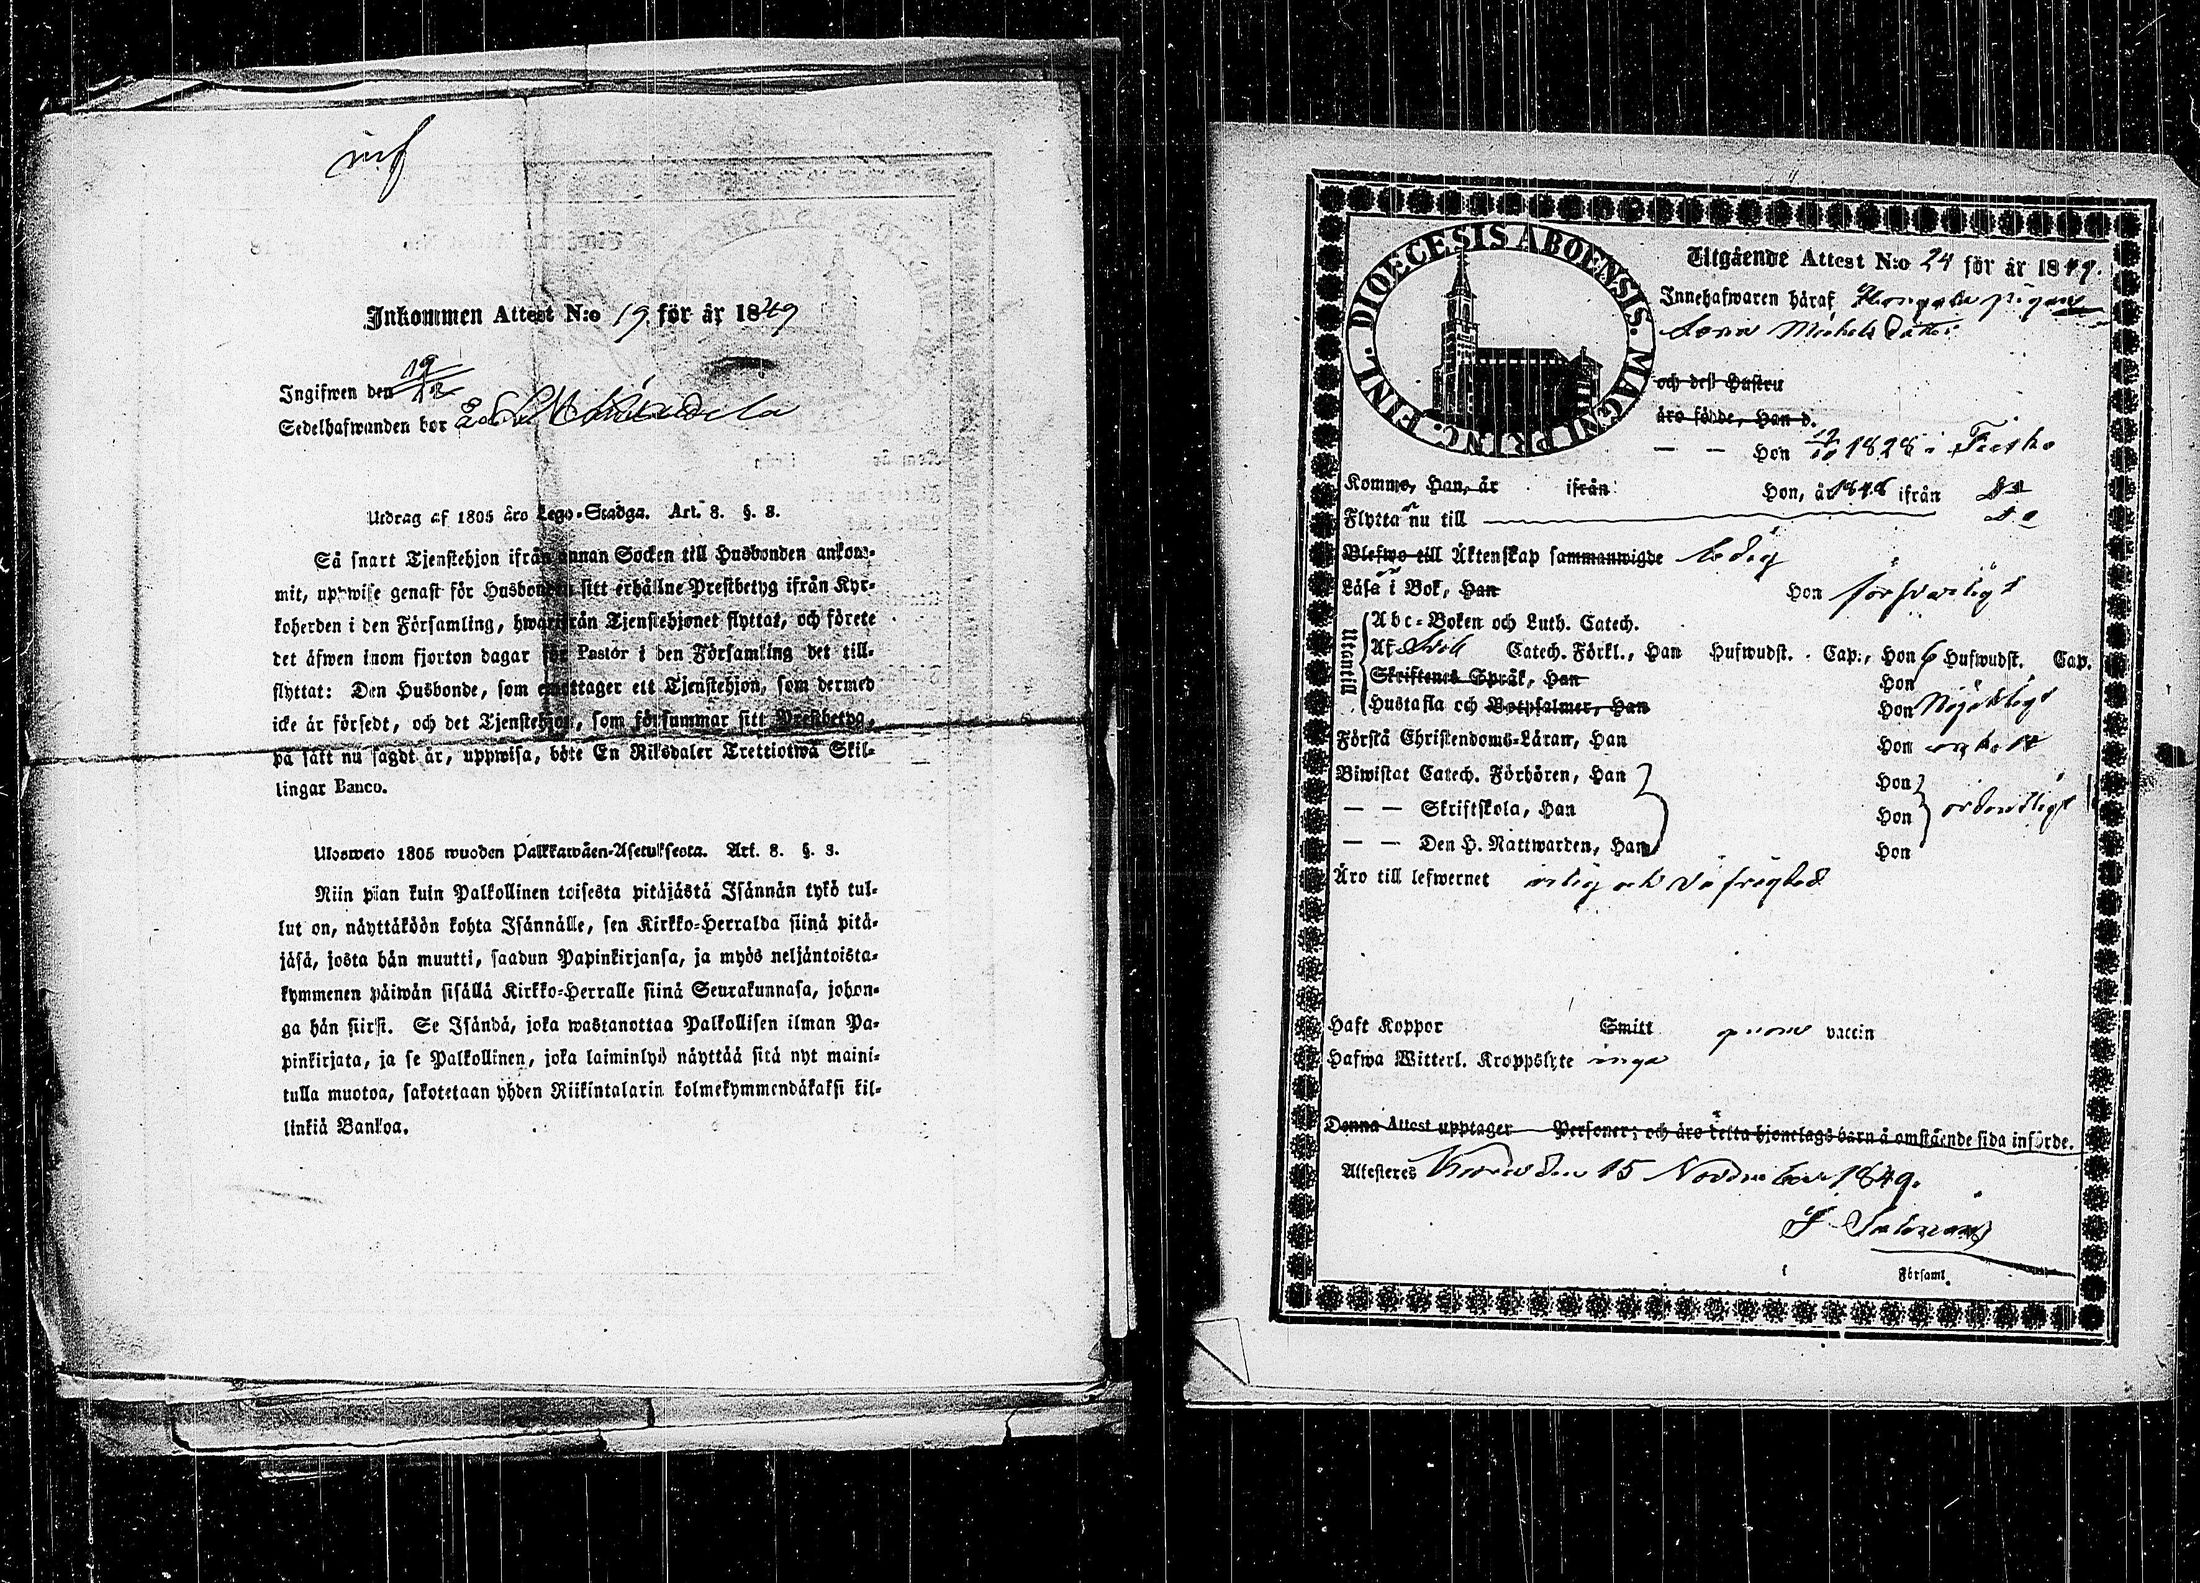 Inkommen Attest N:o 19 för år 1849
Ingifwen den 19/12
Sedelhafwanden bor
Utdrag af 1805 års Lego-Stadga. Art. 8. §. 8.
Så snart Tjenstehjon ifrån annan Socken till Husbonden ankom-
mit, uppwise genast för Husbonden sitt erhållne Prestbetyg ifrån Kyr-
koherden i den Församling, hwarifrån Tjenstehjonet flyttat, och förete
det äfwen inom fjorton dagar för Pastor i den Församling det till-
flyttat: Den Husbonde, som emottager ett Tjenstehjon, som dermed
icke är försedt, och det Tjenstehjon, som försummar sitt Prestbetyg,
på sätt nu sagdt är, uppwisa, böte En Riksdaler Trettiotwå Skil-
lingar Banco.
Ulosweto 1805 wuoden Palkkawäen-Asetuksesta. Art. 8. §. 8.
Niin pian kuin Palkollinen toisesta pitäjästä Isännän tykö tul-
lut on, näyttäköön kohta Isännälle, sen Kirkko-Herralda siinä pitä-
jäsä, josta hän muutti, saadun Papinkirjansa, ja myös neljäntoista-
kymmenen päiwän sisällä Kirkko-Herralle siinä Seurakunnasa, johon-
ga hän siirsi. Se Isändä, joka wastanottaa Palkollisen ilman Pa-
pinkirjata, ja se Palkollinen, joka laiminlyö näyttää sitä nyt maini-
tulla muotoa, sakotetaan yhden Riikintalarin kolmekymmendäkaksi kil-
linkiä Bankoa.
DIOECESIS ABOENSIS. MAGNI PRINC. FINL.
Utgående Attest N:o 24 för år 1849.
Innehafwaren häraf pigan
Michels Dotter
och dess Hustru
äro födde, Han d.
— — Hon 1828 i
Komme, Han, år ifrån Hon, år 1848 ifrån
Flytta nu till
Blefwo till Äktenskap sammanwigde ledig
Läsa i Bok, Han Hon försvarligt
Utantill
Abc-Boken och Luth. Catech.
Af Sveb Catech. Förkl., Han Hufwudst. Cap., Hon 6 Hufwudst. Cap.
Skriftenes Språk, Han Hon
Hustafla och Botpsalmer, Han Hon Nöjaktigt
Förstå Christendoms-Läran, Han Hon enkelt
Biwistat Catech. Förhören, Han Hon
— — Skriftskola, Han Hon ordentligt
— — Den H. Nattwarden, Han Hon
Äro till lefwernet ärlig och väl frägdad
Haft Koppor Smitt genom vaccin
Hafwa Witterl. Kroppslyte inga
Denna Attest upptager Personer; och äro detta hjonelags barn å omstående sida införde.
Attesteres den 15 November 1849.
Församl.